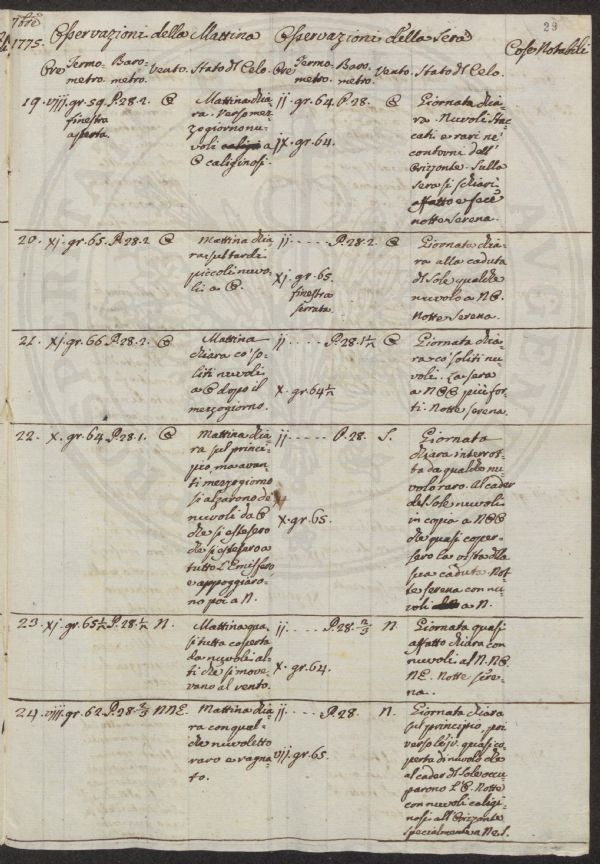 29
7bre
1775. Osservazioni della Mattina Osservazioni della Sera Cose Notabili
Ore Termo- Baro- Vento. Stato del Celo. Ore Termo- Baro- Vento Stato del Celo.
metro. metro. metro. metro.
19. viij. gr. 59. P. 28. 2. O
finestra
aperta.
Mattina chia-
ra. Verso mez-
zogiorno nu-
voli a
O caliginosi.
ij. gr. 64. P. 28. O
ix. gr. 64.
Giornata chia-
ra. Nuvoli stac-
cati e rari ne'
contorni dell'
Orizzonte. Sulla
sera si schiarì
affatto e fece
notte serena.
20. xj. gr. 65. P. 28. 2. O
Mattina chia-
ra sul tardi
piccoli nuvo-
li a O.
ij . . . . . P. 28. 2. O
xj. gr. 65.
finestra
serrata.
Giornata chia-
ra alla caduta
del Sole qualche
nuvolo a NO.
Notte Serena.
21. xj. gr. 66. P. 28. 2. O
Mattina
chiara co' so-
liti nuvoli
a O dopo il
mezzogiorno.
ij . . . . . P. 28. 1½ O
x. gr. 64½
Giornata chia-
ra co' soliti nu-
voli. La sera
a NOO più for-
ti. Notte serena.
22. x. gr. 64. P. 28. 1. O
Mattina chia-
ra sul princi-
pio, ma avan-
ti mezzogiorno
si alzarono de
nuvoli da O
che si estesero
che si estesero a
tutto l'Emisfero
e appoggiaro-
no poi a N.
ij . . . . . P. 28. S.
x. gr. 65.
Giornata
chiara interrot-
ta da qualche nu-
volo raro. Al cader
del Sole nuvoli
in copia a NOO
che quasi coper-
sero la vista della
sua caduta. Not-
te serena con nu-
voli a N.
23. xj. gr. 65½ P. 28. ½ N.
Mattina qua-
si tutta coperta
da nuvoli al-
ti che si move-
vano al vento.
ij . . . . P. 28. ⅔ N.
x. gr. 64.
Giornata quasi
affatto chiara con
nuvoli al N. NO.
NE. Notte sere-
na.
24. viij. gr. 62. P. 28. ⅔ NNE.
Mattina chia-
ra con qual-
che nuvoletto
raro e ragna-
to.
ij . . . . P. 28. N.
vij. gr. 65.
Giornata chiara
sul principio, poi
verso le iv. quasi co-
perta di nuvolo che
al cader del Sole occu-
parono l'O. Notte
con nuvoli caligi-
nosi all'Orizzonte
specialmente a N e S.